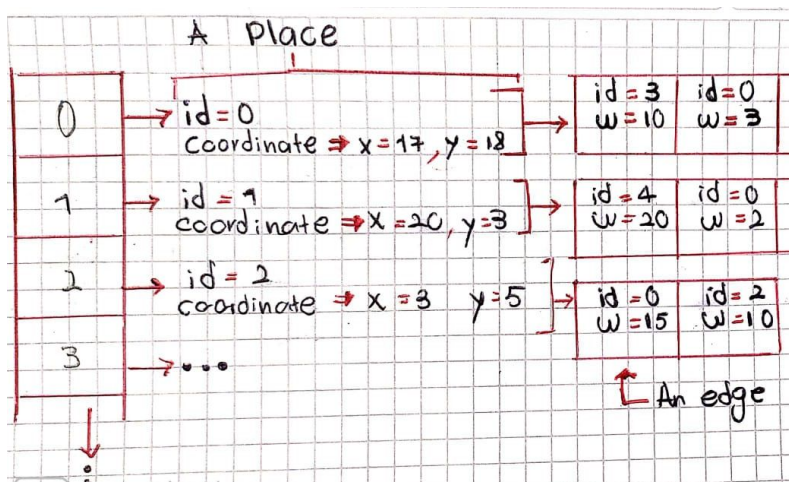 A Place
0
id = 0
coordinate ⇒ x = 17, y = 18
id = 3 id = 0
w = 10 w = 3
1
id = 1
coordinate ⇒ x = 20, y = 3
id = 4 id = 0
w = 20 w = 2
2
id = 2
coordinate ⇒ x = 3 y = 5
id = 0 id = 2
w = 15 w = 10
3
...
An edge